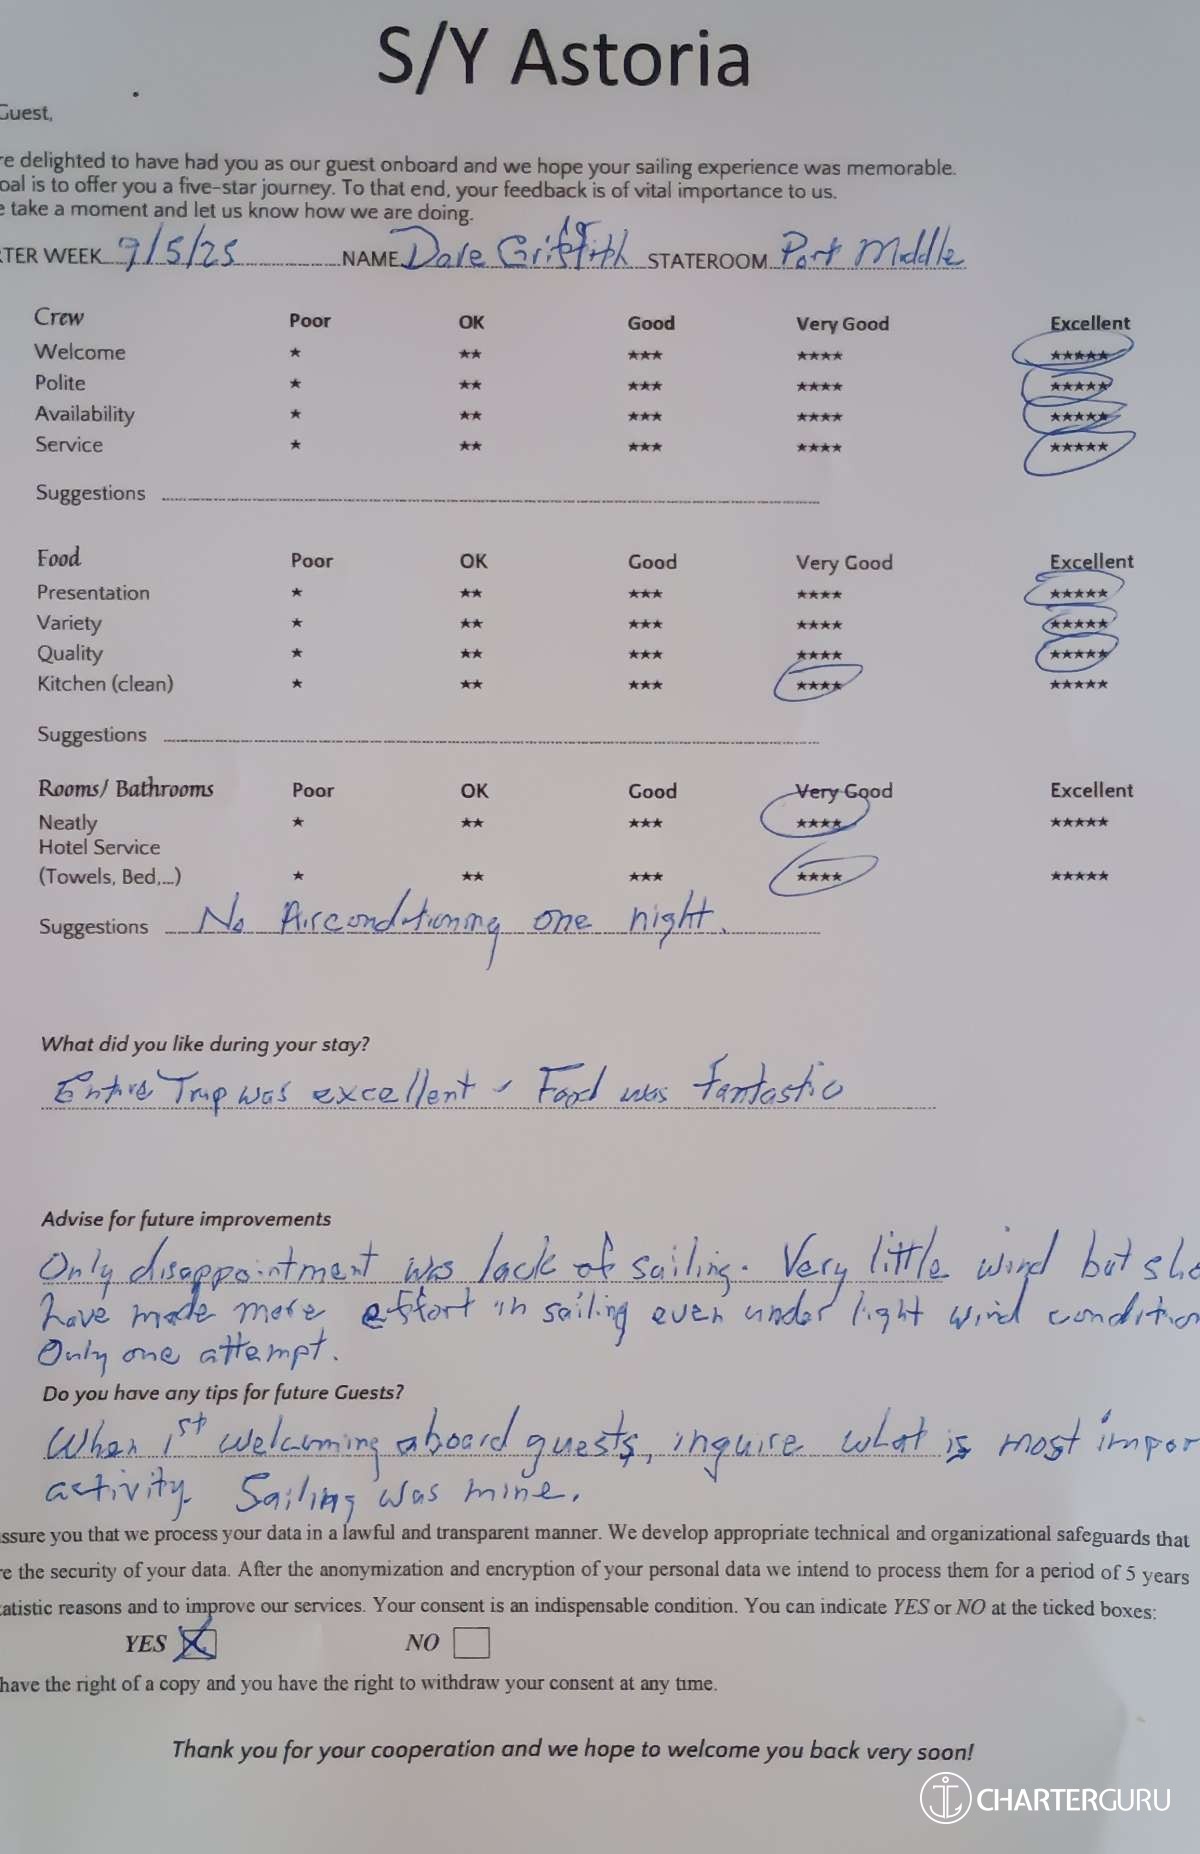 S/Y Astoria
Guest,
re delighted to have had you as our guest onboard and we hope your sailing experience was memorable.
oal is to offer you a five-star journey. To that end, your feedback is of vital importance to us.
e take a moment and let us know how we are doing.
RTER WEEK 9/5/25 NAME Dale Griffith STATEROOM Port Middle
Crew Poor OK Good Very Good Excellent
Welcome ★ ★★ ★★★ ★★★★ ★★★★★
Polite ★ ★★ ★★★ ★★★★ ★★★★★
Availability ★ ★★ ★★★ ★★★★ ★★★★★
Service ★ ★★ ★★★ ★★★★ ★★★★★
Suggestions
Food Poor OK Good Very Good Excellent
Presentation ★ ★★ ★★★ ★★★★ ★★★★★
Variety ★ ★★ ★★★ ★★★★ ★★★★★
Quality ★ ★★ ★★★ ★★★★ ★★★★★
Kitchen (clean) ★ ★★ ★★★ ★★★★ ★★★★★
Suggestions
Rooms/ Bathrooms Poor OK Good Very Good Excellent
Neatly ★ ★★ ★★★ ★★★★ ★★★★★
Hotel Service
(Towels, Bed,...) ★ ★★ ★★★ ★★★★ ★★★★★
Suggestions No Airconditioning one night.
What did you like during your stay?
Entire Trip was excellent - Food was fantastic
Advise for future improvements
Only disappointment was lack of sailing. Very little wind but sho
have made more effort in sailing even under light wind condition
Only one attempt.
Do you have any tips for future Guests?
When 1st welcoming aboard guests, inquire what is most impor
activity. Sailing was mine.
assure you that we process your data in a lawful and transparent manner. We develop appropriate technical and organizational safeguards that
re the security of your data. After the anonymization and encryption of your personal data we intend to process them for a period of 5 years
tatistic reasons and to improve our services. Your consent is an indispensable condition. You can indicate YES or NO at the ticked boxes:
YES NO
have the right of a copy and you have the right to withdraw your consent at any time.
Thank you for your cooperation and we hope to welcome you back very soon!
CHARTERGURU